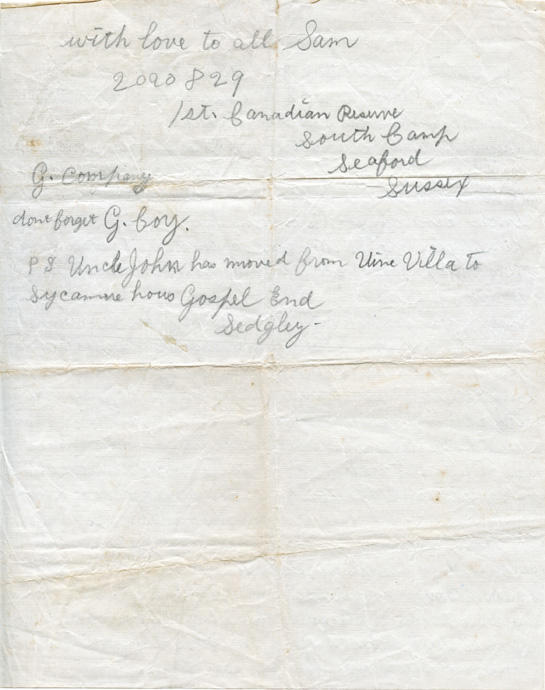 with love to all Sam
2020829
1st. Canadian Reserve
South Camp
Seaford
Sussex
G. Company
dont forget G. Coy.
P S Uncle John has moved from Vine Villa to
Sycamire hous Gospel End
Sedgley-